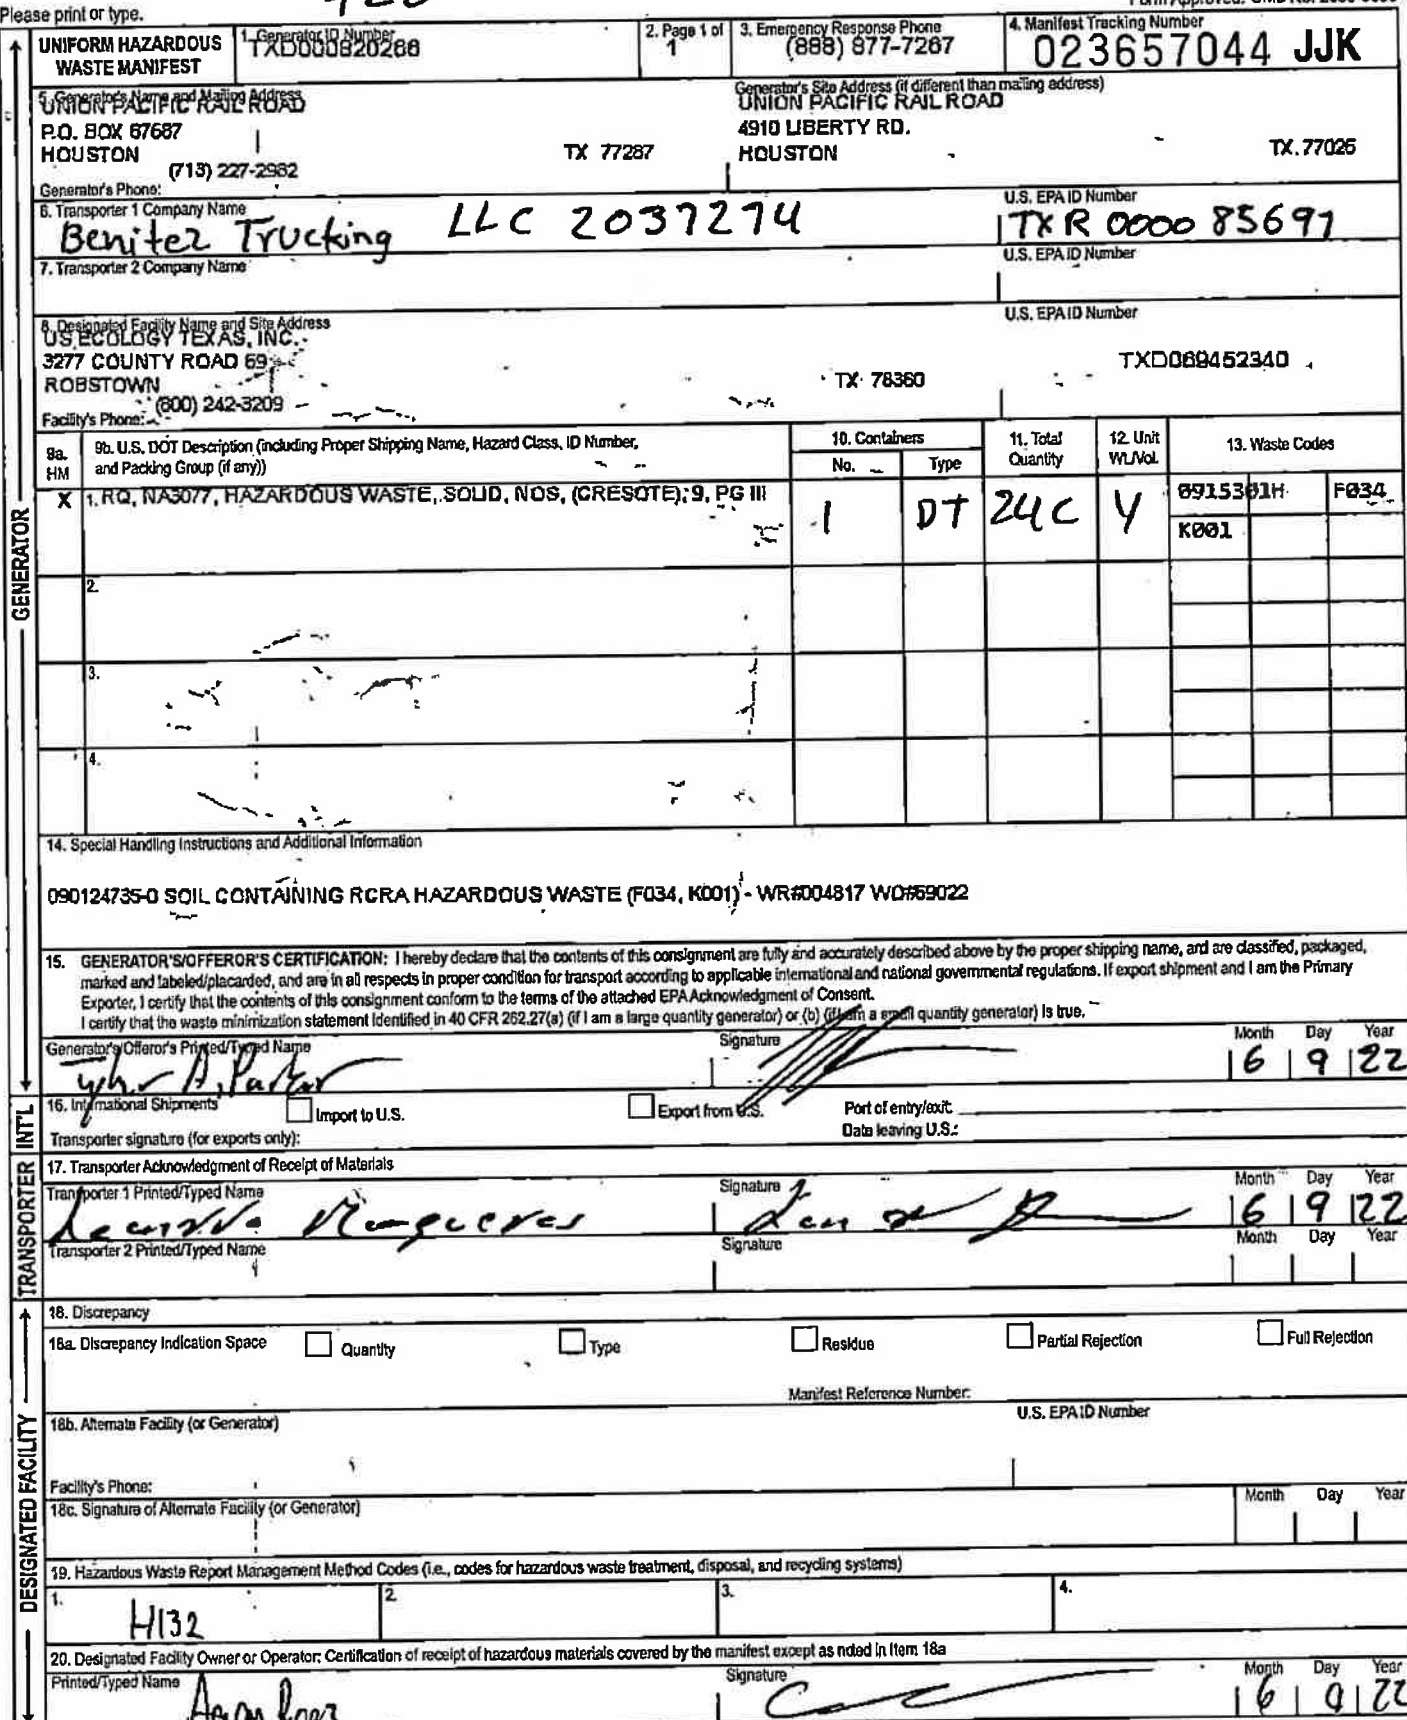 Please print or type.
UNIFORM HAZARDOUS WASTE MANIFEST
1. Generator ID Number
TXD000820266
2. Page 1 of
1
3. Emergency Response Phone
(888) 877-7267
4. Manifest Tracking Number
023657044 JJK
5. Generator's Name and Mailing Address
UNION PACIFIC RAIL ROAD
P.O. BOX 67687
HOUSTON TX 77287
(713) 227-2982
Generator's Phone:
Generator's Site Address (if different than mailing address)
UNION PACIFIC RAIL ROAD
4910 LIBERTY RD.
HOUSTON TX. 77026
6. Transporter 1 Company Name
Benitez Trucking LLC 2037274
U.S. EPA ID Number
TXR 0000 85697
7. Transporter 2 Company Name
U.S. EPA ID Number
8. Designated Facility Name and Site Address
US ECOLOGY TEXAS, INC.
3277 COUNTY ROAD 69
ROBSTOWN TX 78360
(800) 242-3209
Facility's Phone:
U.S. EPA ID Number
TXD069452340
GENERATOR
9a. HM
9b. U.S. DOT Description (including Proper Shipping Name, Hazard Class, ID Number,
and Packing Group (if any))
10. Containers
No. Type
11. Total Quantity
12. Unit Wt./Vol.
13. Waste Codes
X 1. RQ, NA3077, HAZARDOUS WASTE, SOLID, NOS, (CRESOTE); 9, PG III
1 DT 24 Y
0915301H F034
K001
2.
3.
4.
14. Special Handling Instructions and Additional Information
090124735-0 SOIL CONTAINING RCRA HAZARDOUS WASTE (F034, K001) - WR#004817 WO#69022
15. GENERATOR'S/OFFEROR'S CERTIFICATION: I hereby declare that the contents of this consignment are fully and accurately described above by the proper shipping name, and are classified, packaged,
marked and labeled/placarded, and are in all respects in proper condition for transport according to applicable international and national governmental regulations. If export shipment and I am the Primary
Exporter, I certify that the contents of this consignment conform to the terms of the attached EPA Acknowledgment of Consent.
I certify that the waste minimization statement identified in 40 CFR 262.27(a) (if I am a large quantity generator) or (b) (if I am a small quantity generator) is true.
Generator's/Offeror's Printed/Typed Name
Signature
Month Day Year
6 9 22
INT'L
16. International Shipments
Import to U.S.
Export from U.S.
Port of entry/exit:
Date leaving U.S.:
Transporter signature (for exports only):
TRANSPORTER
17. Transporter Acknowledgment of Receipt of Materials
Transporter 1 Printed/Typed Name
Signature
Month Day Year
6 9 22
Transporter 2 Printed/Typed Name
Signature
Month Day Year
DESIGNATED FACILITY
18. Discrepancy
18a. Discrepancy Indication Space
Quantity
Type
Residue
Partial Rejection
Full Rejection
Manifest Reference Number:
18b. Alternate Facility (or Generator)
U.S. EPA ID Number
Facility's Phone:
18c. Signature of Alternate Facility (or Generator)
Month Day Year
19. Hazardous Waste Report Management Method Codes (i.e., codes for hazardous waste treatment, disposal, and recycling systems)
1. H132
2.
3.
4.
20. Designated Facility Owner or Operator: Certification of receipt of hazardous materials covered by the manifest except as noted in Item 18a
Printed/Typed Name
Signature
Month Day Year
6 9 22